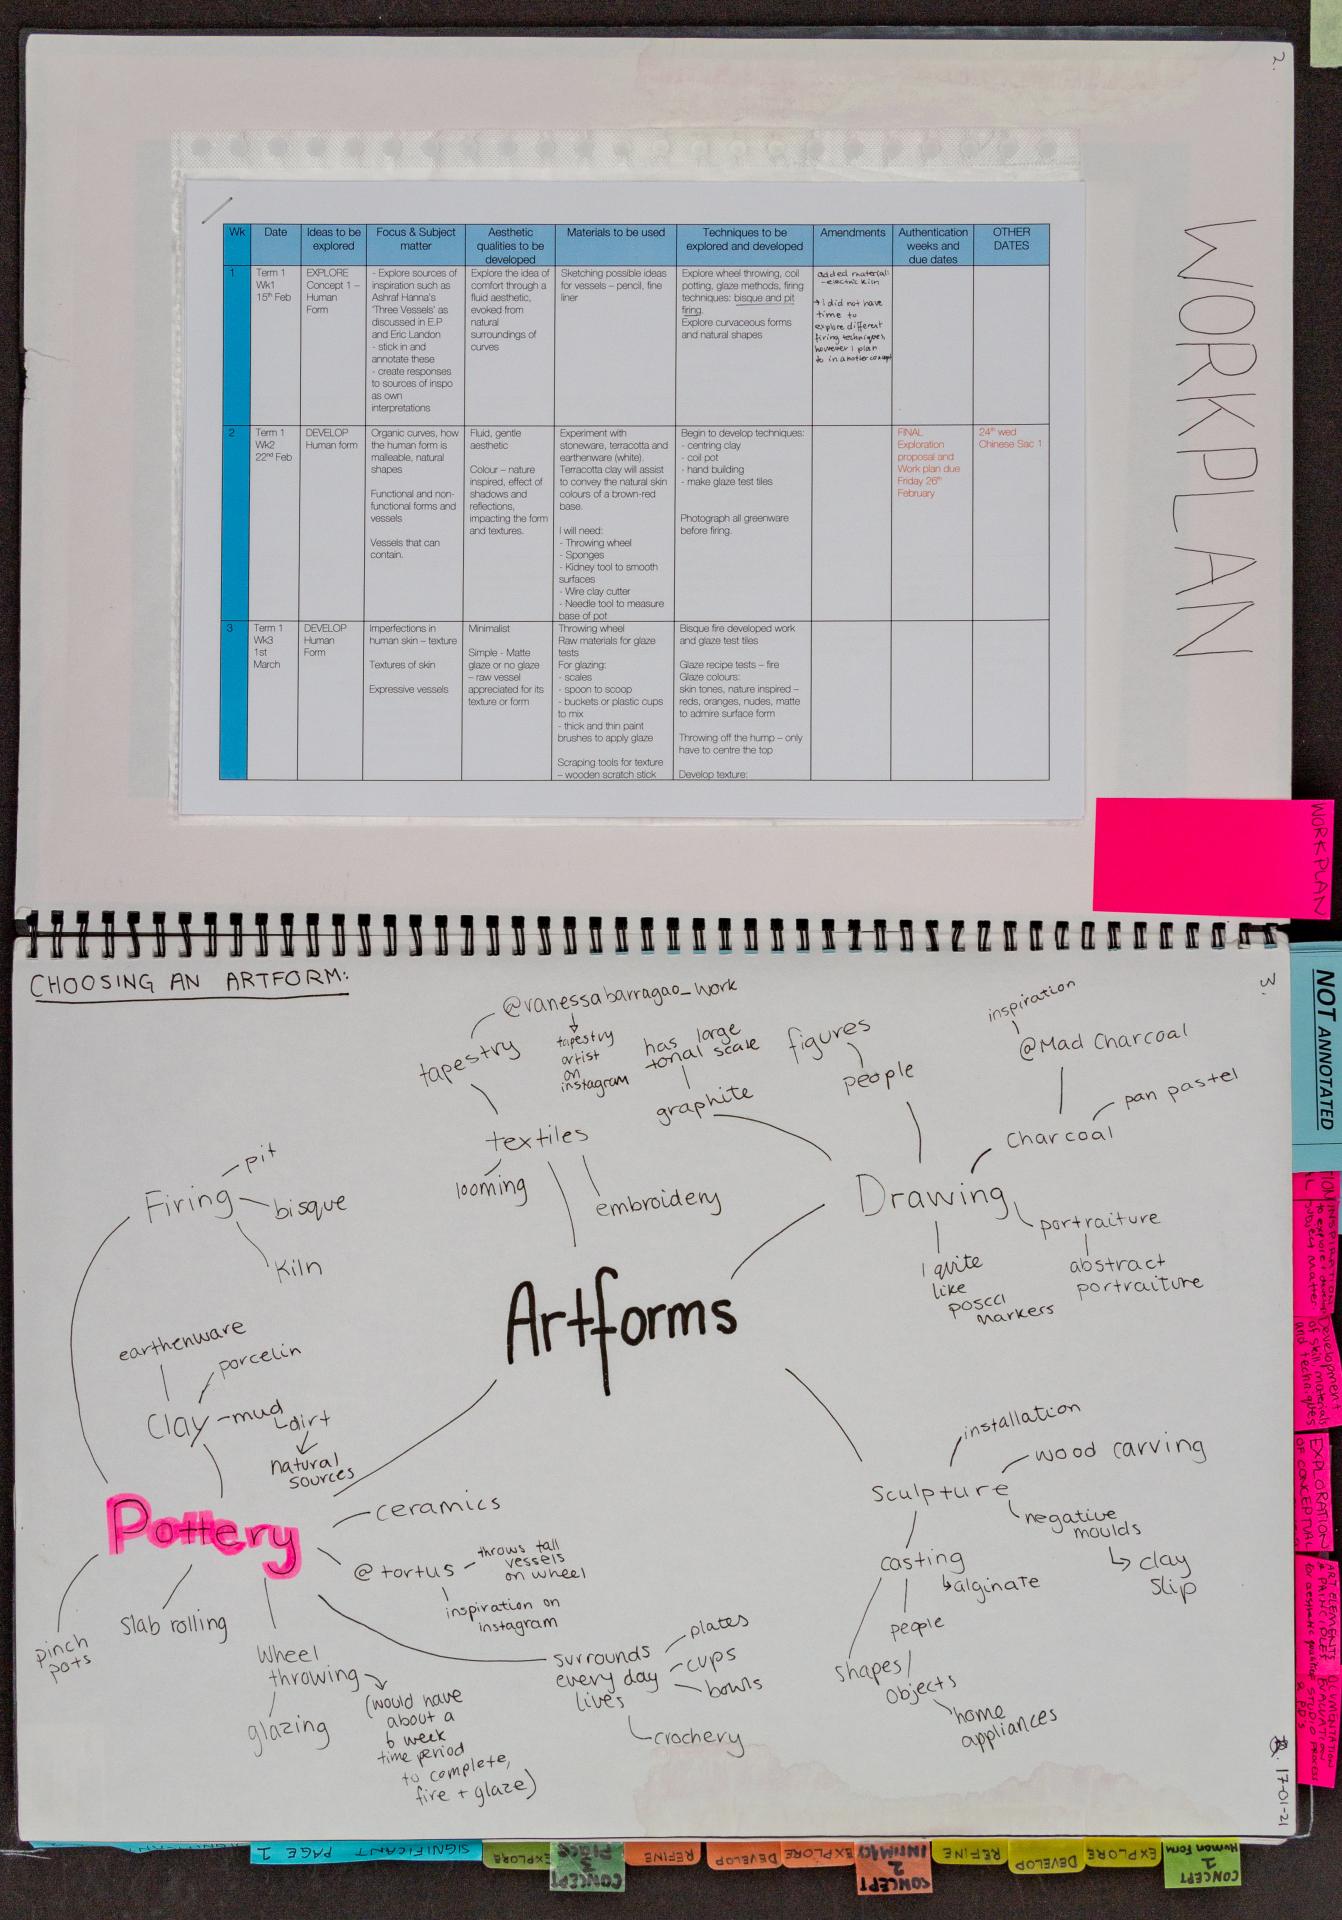 2.
WORKPLAN
Wk
Date
Ideas to be
explored
Focus & Subject
matter
Aesthetic
qualities to be
developed
Materials to be used
Techniques to be
explored and developed
Amendments
Authentication
weeks and
due dates
OTHER
DATES
1
Term 1
Wk1
15th Feb
EXPLORE
Concept 1 –
Human
Form
- Explore sources of
inspiration such as
Ashraf Hanna's
'Three Vessels' as
discussed in E.P
and Eric Landon
- stick in and
annotate these
- create responses
to sources of inspo
as own
interpretations
Explore the idea of
comfort through a
fluid aesthetic,
evoked from
natural
surroundings of
curves
Sketching possible ideas
for vessels – pencil, fine
liner
Explore wheel throwing, coil
potting, glaze methods, firing
techniques: bisque and pit
firing.
Explore curvaceous forms
and natural shapes
added material:
- electric kiln
→ I did not have
time to
explore different
firing techniques
however I plan
to in another concept
2
Term 1
Wk2
22nd Feb
DEVELOP
Human form
Organic curves, how
the human form is
malleable, natural
shapes
Functional and non-
functional forms and
vessels
Vessels that can
contain.
Fluid, gentle
aesthetic
Colour – nature
inspired, effect of
shadows and
reflections,
impacting the form
and textures.
Experiment with
stoneware, terracotta and
earthenware (white).
Terracotta clay will assist
to convey the natural skin
colours of a brown-red
base.
I will need:
- Throwing wheel
- Sponges
- Kidney tool to smooth
surfaces
- Wire clay cutter
- Needle tool to measure
base of pot
Begin to develop techniques:
- centring clay
- coil pot
- hand building
- make glaze test tiles
Photograph all greenware
before firing.
FINAL
Exploration
proposal and
Work plan due
Friday 26th
February
24th wed
Chinese Sac 1
3
Term 1
Wk3
1st
March
DEVELOP
Human
Form
Imperfections in
human skin – texture
Textures of skin
Expressive vessels
Minimalist
Simple - Matte
glaze or no glaze
– raw vessel
appreciated for its
texture or form
Throwing wheel
Raw materials for glaze
tests
For glazing:
- scales
- spoon to scoop
- buckets or plastic cups
to mix
- thick and thin paint
brushes to apply glaze
Scraping tools for texture
– wooden scratch stick
Bisque fire developed work
and glaze test tiles
Glaze recipe tests – fire
Glaze colours:
skin tones, nature inspired –
reds, oranges, nudes, matte
to admire surface form
Throwing off the hump – only
have to centre the top
Develop texture:
WORKPLAN
CHOOSING AN ARTFORM:
3.
NOT ANNOTATED
Artforms
textiles
tapestry
@vanessabarragao_work
tapestry
artist
on
instagram
looming
embroidery
Drawing
graphite
has large
tonal scale
people
figures
Charcoal
@Mad Charcoal
inspiration
pan pastel
portraiture
abstract
portraiture
I quite
like
poscca
markers
Firing
pit
bisque
Kiln
Clay
earthenware
porcelin
mud
dirt
natural
sources
Pottery
ceramics
@tortus
throws tall
vessels
on wheel
inspiration on
instagram
pinch
pots
Slab rolling
Wheel
throwing
glazing
(would have
about a
6 week
time period
to complete,
fire + glaze)
surrounds
every day
lives
plates
cups
bowls
crochery
Sculpture
installation
wood carving
negative
moulds
↳ clay
slip
casting
↳ alginate
people
shapes/
objects
home
appliances
17-01-21
EXPLORATION
OF CONCEPTUAL
SIGNIFICANT PAGE 1
EXPLORE
CONCEPT
3
PLACE
REFINE
DEVELOP
EXPLORE
CONCEPT
2
REFINE
DEVELOP
EXPLORE
CONCEPT
1
Human Form